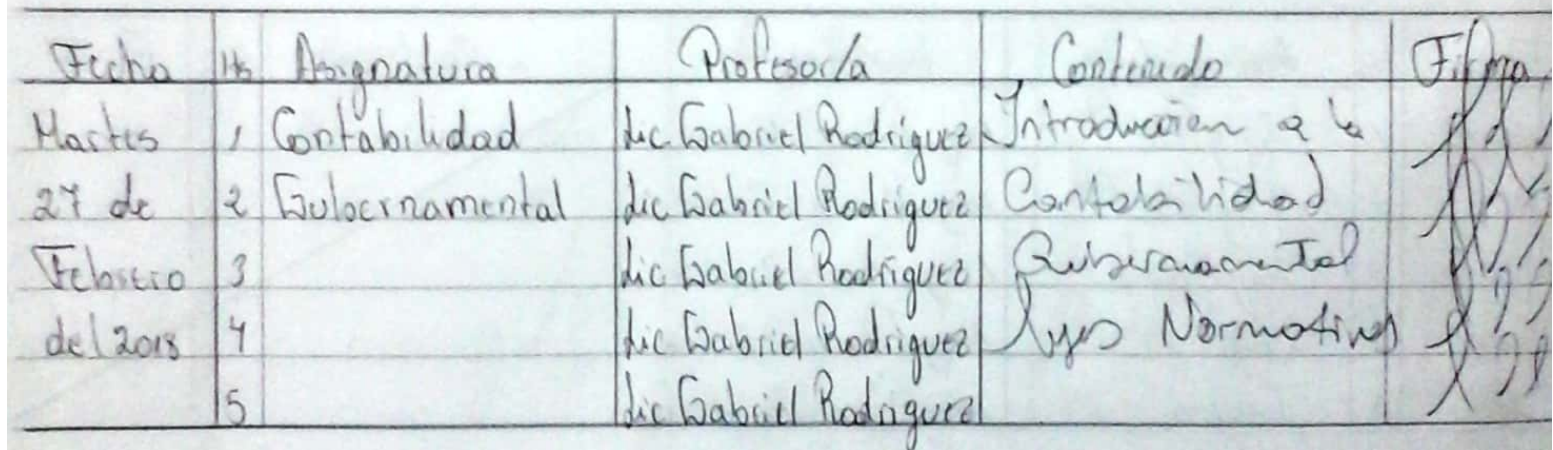 Fecha Hs Asignatura Profesor/a Contenido Firma
Martes 1 Contabilidad Lic Gabriel Rodriguez Introducción a la
27 de 2 Gubernamental Lic Gabriel Rodriguez Contabilidad
Febrero 3 Lic Gabriel Rodriguez Gubernamental
del 2018 4 Lic Gabriel Rodriguez Leyes Normativas
5 Lic Gabriel Rodriguez